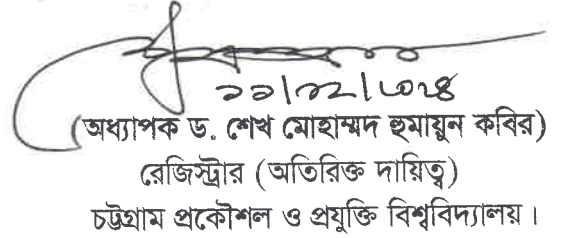 ১১/১২/২০২৪
(অধ্যাপক ড. শেখ মোহাম্মদ হুমায়ুন কবির)
রেজিস্ট্রার (অতিরিক্ত দায়িত্ব)
চট্টগ্রাম প্রকৌশল ও প্রযুক্তি বিশ্ববিদ্যালয়।